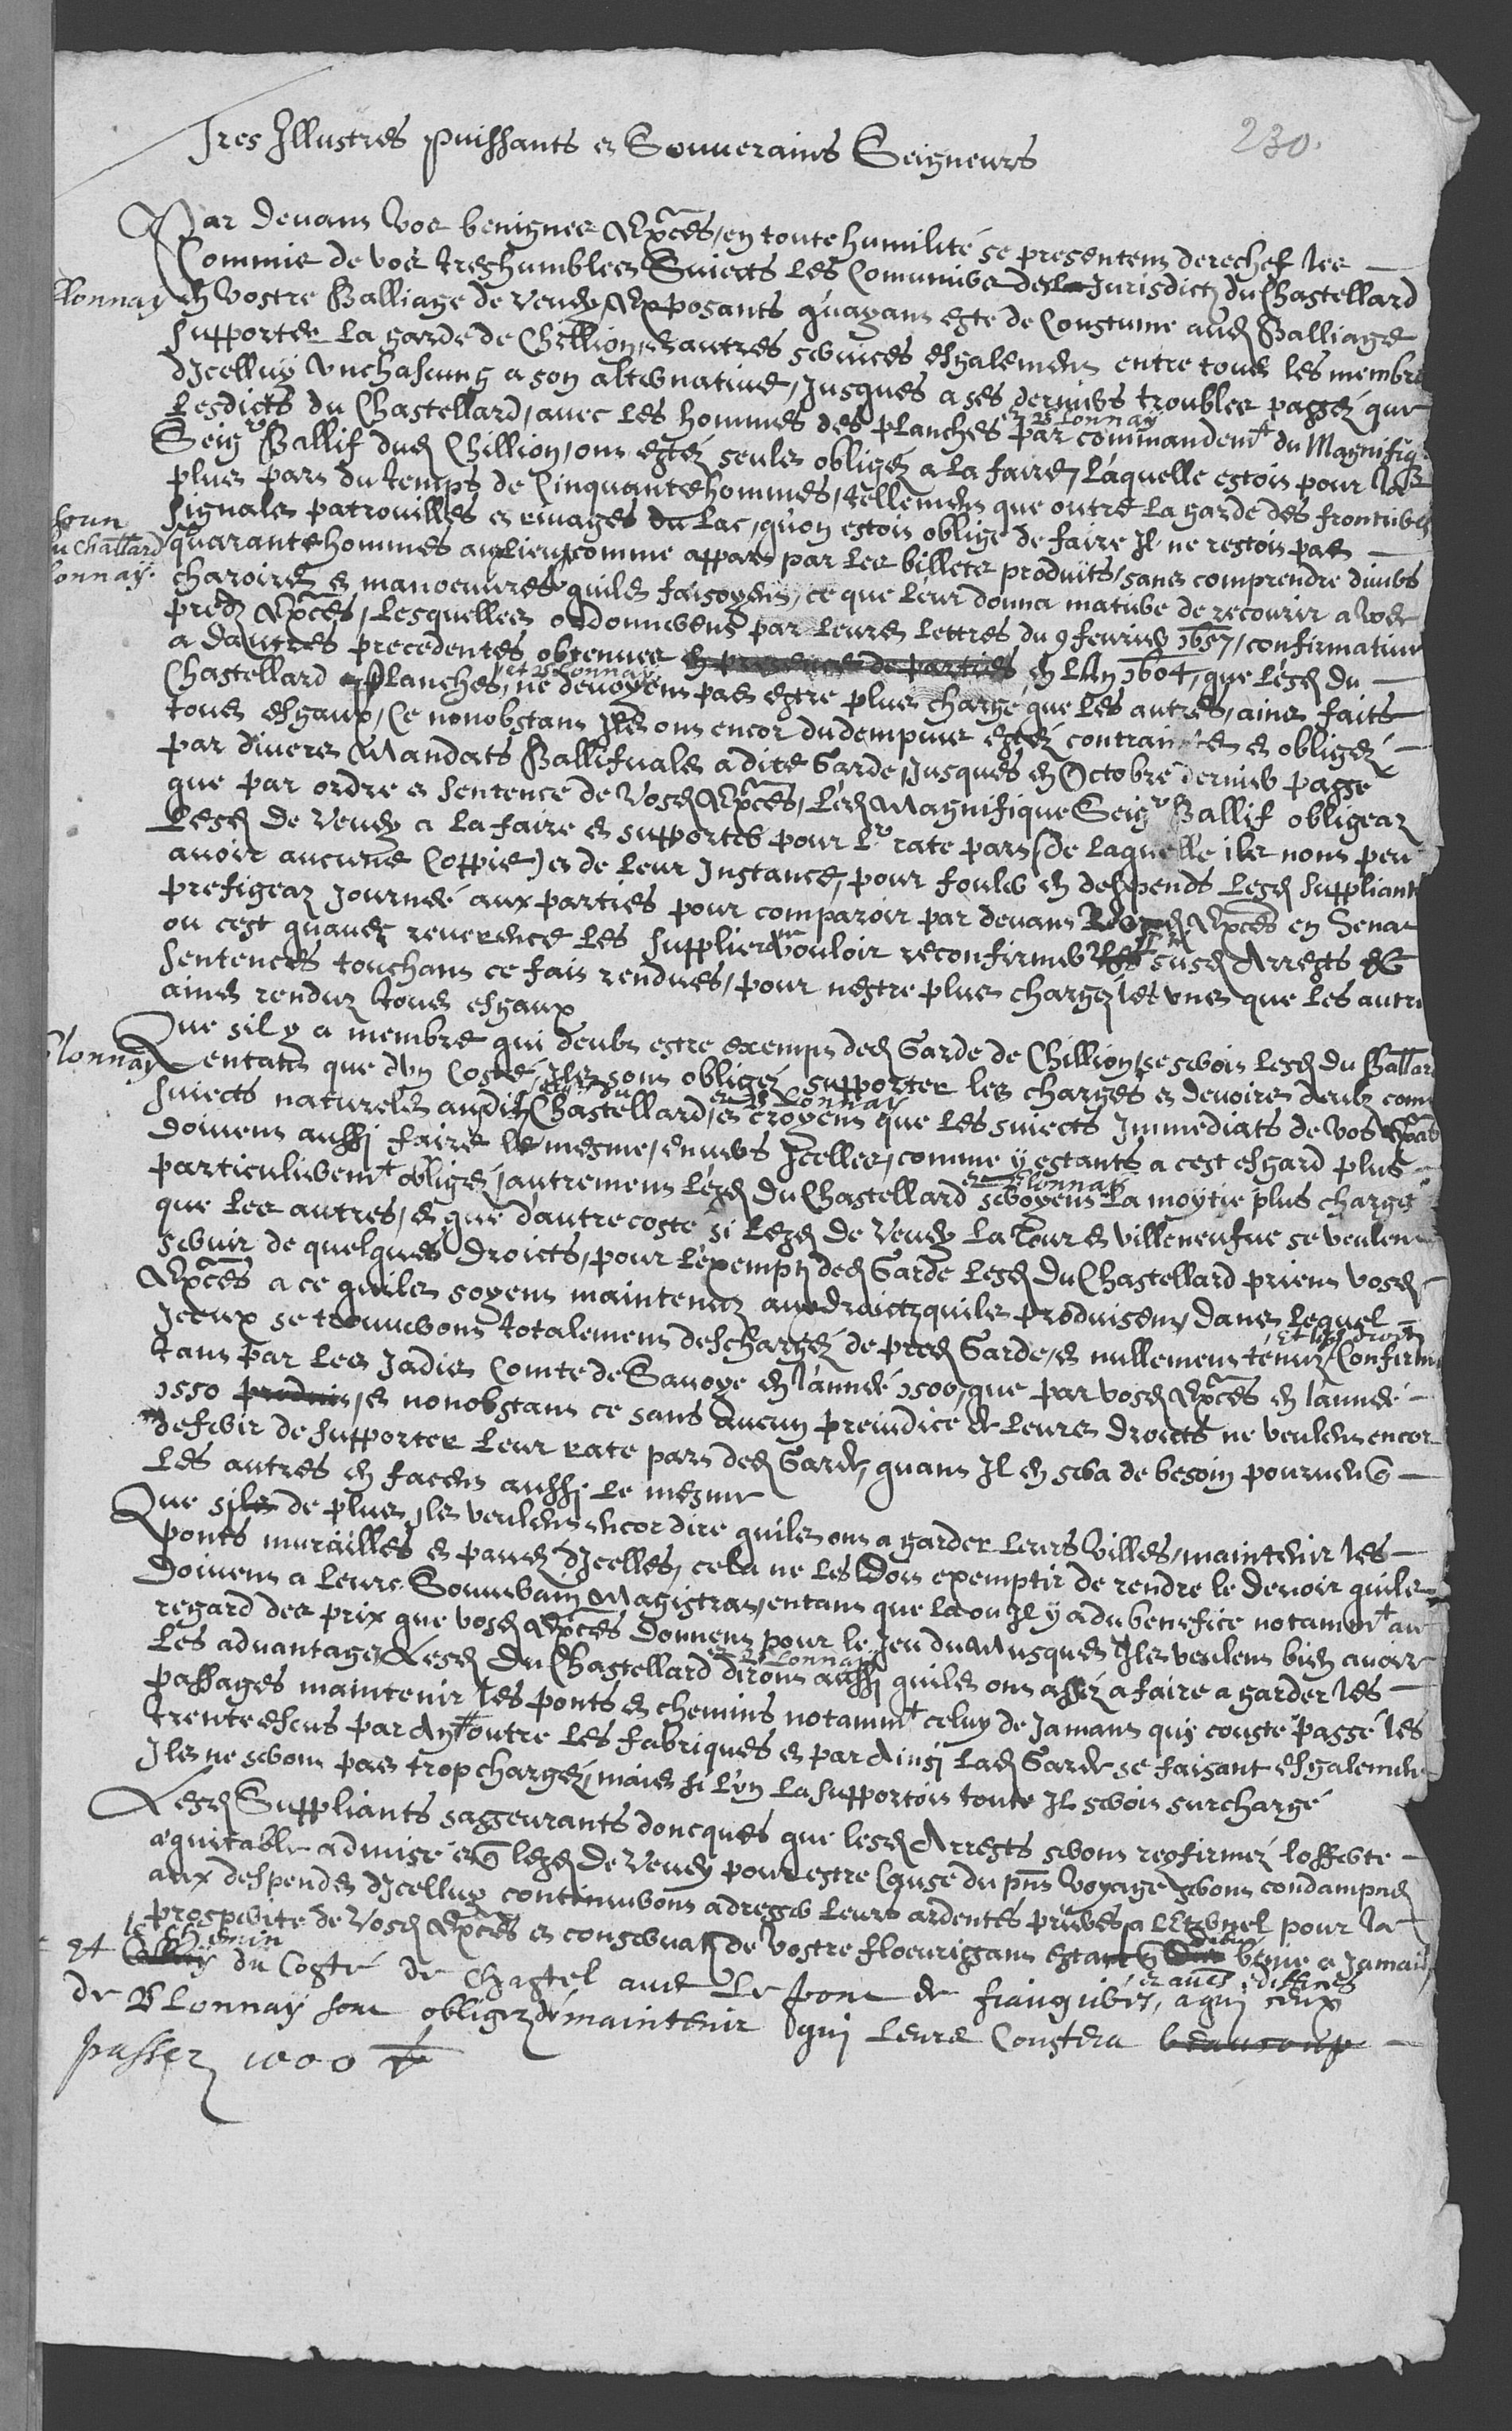 230.
Tres Illustres puissants et Souuerains Seigneurs
Par deuant Vos benignes Exces, en toute humilité se presentent derechef les
Commis de vos treshumbles Suiects les Comunier de la Jurisdict du Chastellard
Blonnay
en Vostre Balliage de Veuey Exposants quayant este de Coustume aud Balliage
supporter la garde de Chillion, et autres seruices esgalement entre tous les membres
dIcelluy vnchascung a son alternatiue, Jusques a ses derniers troubles passéz que
Lesdicts du Chastellard, auec les hommes des planches et Blonnay par commandemt du Magnifiq
Seigr Ballif dud Chillion, ont estéz seuls obligez a la faire, Laquelle estoit pour la
plus part du temps de Cinquante hommes, tellement que outre la garde des frontieres
signals patrouilles et riuages du Lac, quon estoit oblige de faire Il ne restoit pas
du Chastlard
Blonnay.
quarante hommes au lieu, comme appart par les billets produits, sans comprendre diuers
charoires et manoeuures quils faisoyent, ce que leur donna matiere de recourir a Vos
pred Exces, Lesquelles ordonnerent par leurs Lettres du 9 feurier 1657, confirmatiue
a dautres precedentes obtenues en presence de parties en lAn 1604, que lesd du
Chastellard et Planches, et Blonnay, ne deuoyent pas estre plus chargé que les autres, ains faits
tous esgaux, Ce nonobstant Ils ont encor dudempuis estéz contraincts et obligéz
par diuers Mandats Ballifuals a dite Garde, Jusques en Octobre dernier passé
que par ordre et sentence de Vosd Exces, Led Magnifique Seigr Ballif obligeaz
Lesd de Veuey a la faire et supporter pour Lr rate part (de laquelle ils nont peu
auoir aucune Coppie) et de leur Instance, pour fouler en despends Lesd suppliants
prefigeaz Journée aux parties pour comparoir par deuant Vosd Exces en Senat
ou cest quauec reuerence les supplient vouloir reconfirmer susd Arrests et
sentences touchant ce fait rendues, pour nestre plus chargez les vns que les autres
ains renduz tous esgaux
Que sil y a membre qui deubt estre exempt ded Garde de Chillion, ce seroit lesd du Chastellar
Blonnay
entant que dvn Costé, Ils sont obligéz supporter les charges et deuoirs deubz com
suiects naturels audit Chastellard, et Blonnay et croyent que les suiects Immediats de Vos Exces
doiuent aussi faire le mesme, enuers Icelles, comme y estants a cest esgard plus
particulieremt obligé, autrement lesd du Chastellard et Blonnay seroyent la moytie plus chargé
que les autres, et que dautre coste si lesd de Veuey La Tour et villeneufue se veulent
seruir de quelques droicts, pour lexempt ded Garde lesd du Chastellard prient vosd
Exces a ce quils soyent maintenuz aux droictz quils produisent, dans lequel
Iceux se trouueront totalement deschargéz de pred Garde, et nullement tenuz Confirmé
tant par les Jadis Comte de Sauoye en lannée 1500, que par vosd Exces en lannée
1550 produits, et nonobstant ce sans aucun preiudice de leurs droicts ne veulent encor
de supporter leur rate part ded Garde, quant Il en sera de besoin pourueu que
Les autres en facent aussi le mesme
Que si de plus Ils veulent encor dire quils ont a garder leurs Villes, maintenir les
ponts murailles et pauez dIcelles, cela ne les doit exemptir de rendre le deuoir quils
doiuent a leurs Souuerain Magistrat, entant que la ou Il y a du benefice notammt au
regard des prix que vosd Exces donnent pour le Jeu du Musquet Ils veulent bien auoir
Les aduantages Lesd du Chastellard et Blonnay diront aussi quils ont assez a faire a garder les
passages maintenir les ponts et chemins notammt celuy de Jamant qui couste passé les
trente escus par An outre les fabriques et par Ainsi Lad Garde se faisant esgalement
Ils ne seront pas trop chargéz, mais si lvn la supportoit toute Il seroit surchargé
Lesd Suppliants sasseurants doncques que lesd Arrests seront reconfirméz lofferte
equitable admise et lesd de Veuey pour estre Cause du pnt Voyage seront condampnez
aux despends dIcelluy continueront adresser leurs ardentes prieres a lEternel pour la
prosperite de Vosd Exces et conseruat de Vostre floeurissant estat que Dieu benie a Jamais
et le Chemin du Costé de Chastel auec le pont de et autres ediffices, a quj ceux
de Blonnay sont obligez de maintenir quj leurs Coustera beaucoup
passez 1000